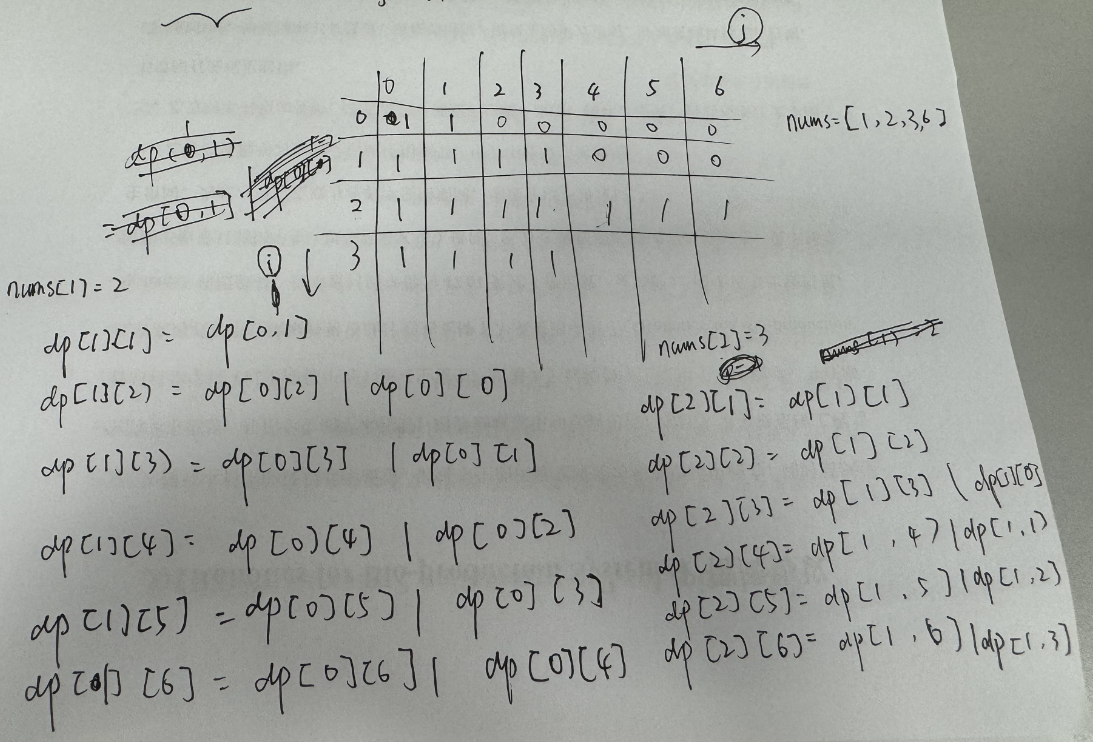 j
0 1 2 3 4 5 6
0 1 1 0 0 0 0 0
1 1 1 1 0 0 0
2 1 1 1 1 1 1 1
3 1 1 1 1
nums=[1,2,3,6]
1
dp(0,1)
=dp[0,1]
i
nums[1)=2
dp[1][1]= dp[0,1]
dp[1][2) = dp[0][2] | dp[0][0]
dp[1][3) = dp[0][3] | dp[0][1]
dp[1][4]= dp[0)[4] | dp[0][2]
dp[1][5] = dp[0][5] | dp[0][3]
dp[1] [6] = dp[0][6] | dp[0][4]
nums[2]=3
dp[2][1]= dp[1][1]
dp[2][2]= dp[1][2]
dp[2][3]= dp[1][3] | dp[1][0]
dp[2)[4]= dp[1,4) | dp[1,1)
dp[2)[5]= dp[1,5] | dp[1,2]
dp[2][6]= dp[1,6] | dp[1,3]